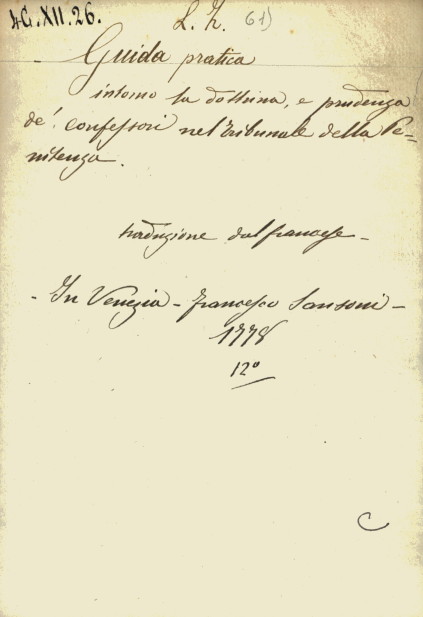 4G.XII.26.
L. h. 61)
Guida pratica
intorno la dottrina, e prudenza
de' confessori nel tribunale della Pe=
nitenza.
traduzione dal francese -
- In Venezia - Francesco Sansoni -
1778
12°
C